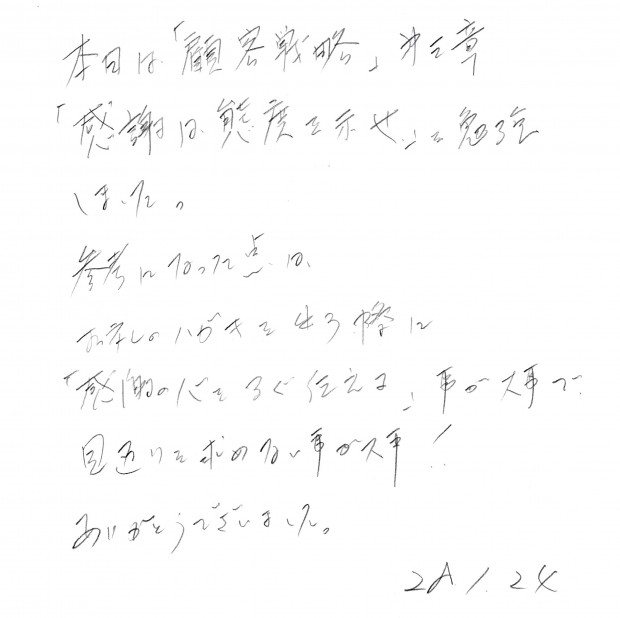 本日は「顧客戦略」第三章
「感謝は態度で示せ」を勉強
しました。
参考になった点は、
お礼のハガキを出す際に
「感謝の心をすぐ伝える」事が大事で
見返りを求めない事が大事！
ありがとうございました。
1.24